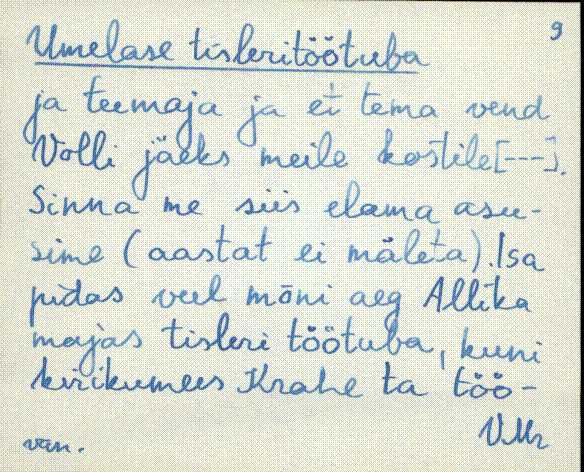 9
Umelase tisleritöötuba
ja teemaja ja et tema vend
Volli jäeks meile kostile[---].
Sinna me siis elama asu-
sime (aastat ei mäleta). Isa
pidas veel mõni aeg Allika
majas tisleri töötuba, kuni
kirikumees Krahe ta töö-